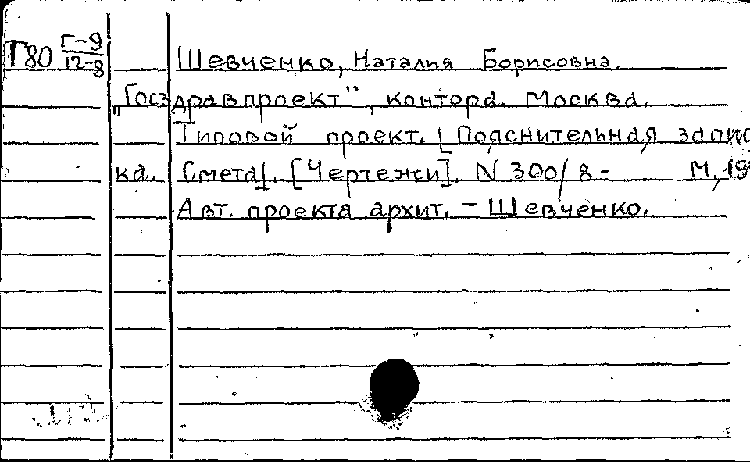 Г80 Г-9
12-8
Шевченко, Наталия Борисовна.
„Госздравпроект", контора. Москва.
Типовой проект. [Пояснительная запис
ка. Смета]. [Чертежи]. N 300/8- М, 19
Авт. проекта архит. - Шевченко.